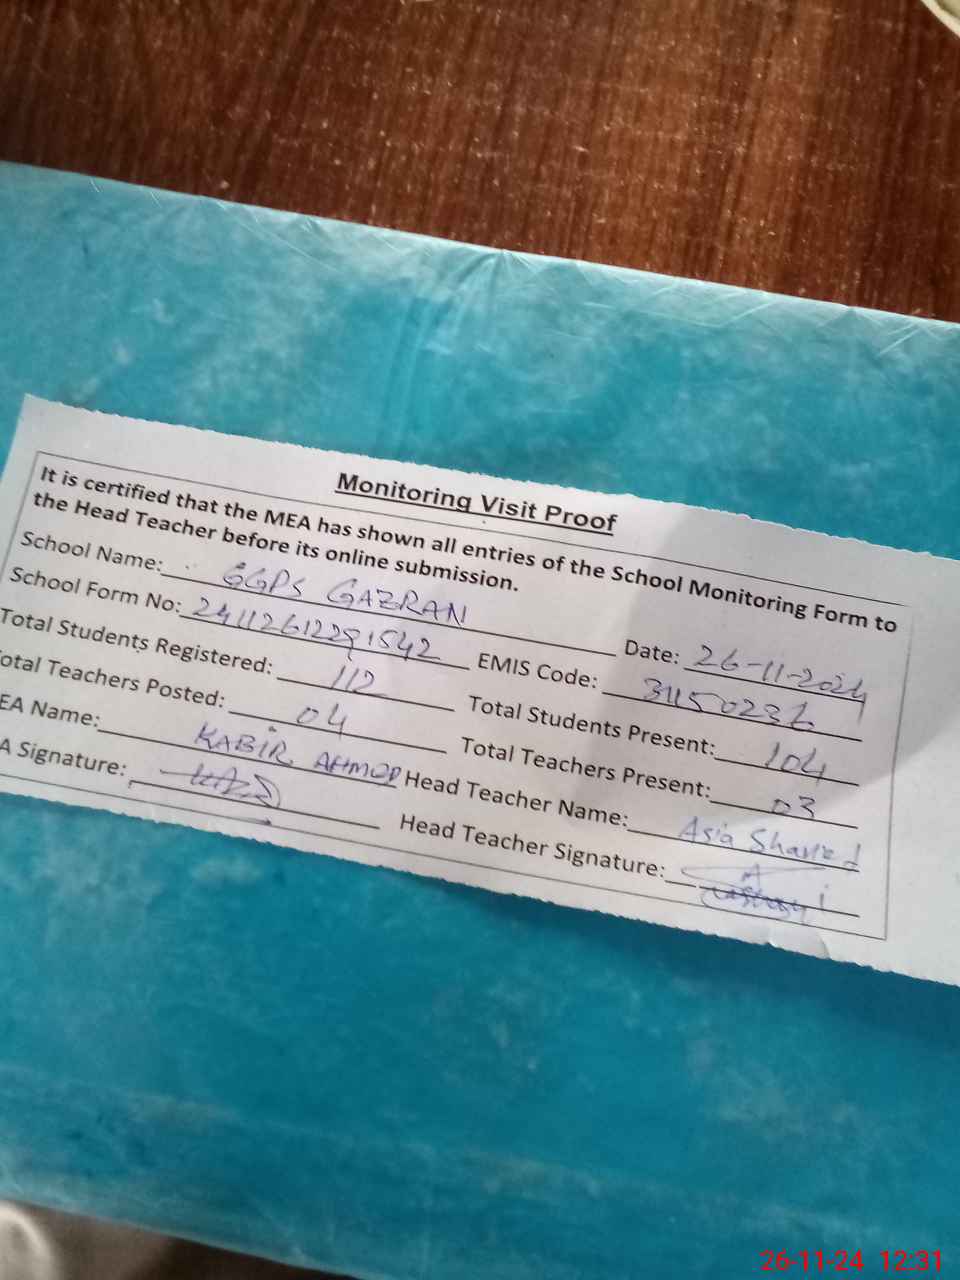 Monitoring Visit Proof
It is certified that the MEA has shown all entries of the School Monitoring Form to
the Head Teacher before its online submission.
School Name: GGPS GAZRAN Date: 26-11-2024
School Form No: EMIS Code:
Total Students Registered: 112 Total Students Present: 104
otal Teachers Posted: 04 Total Teachers Present: 03
EA Name: KABIR AHMED Head Teacher Name: Asia
A Signature: Head Teacher Signature:
26-11-24 12:31